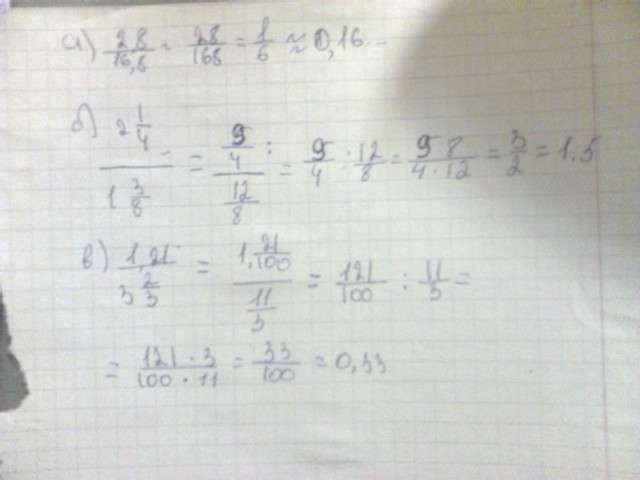 а) 2,8/16,8 = 28/168 = 1/6 ≈ 0,16...
б) 2 1/4 / 1 3/8 = 9/4 / 12/8 = 9/4 : 12/8 = 9 8/4·12 = 3/2 = 1,5
в) 1,21/3 2/3 = 1 21/100 / 11/3 = 121/100 : 11/3 =
= 121·3/100·11 = 33/100 = 0,33